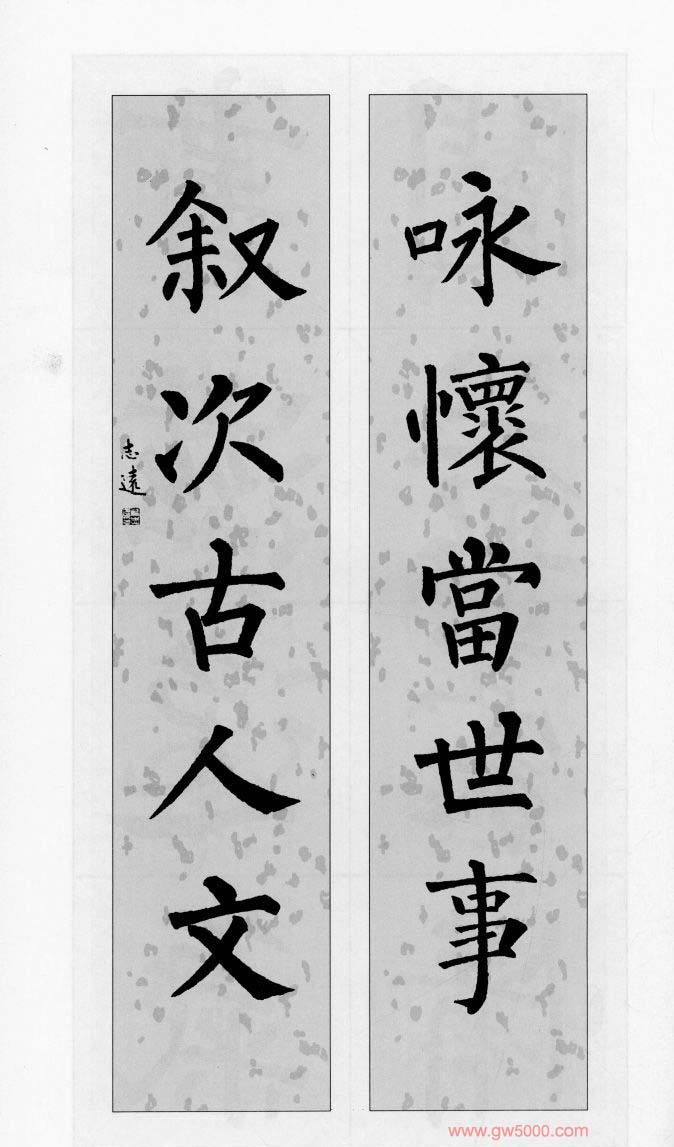 咏懷當世事
叙次古人文
志遠
www.gw5000.com